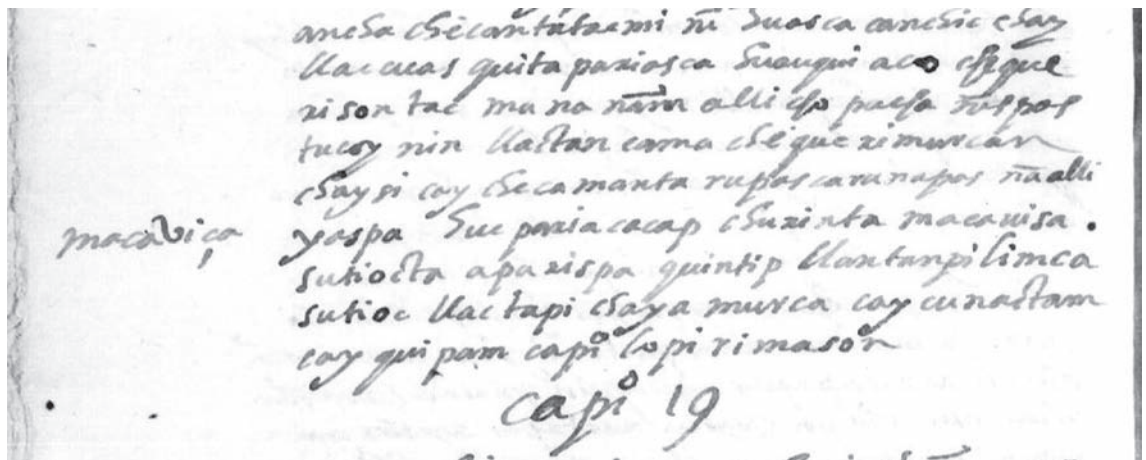 ancha checantatacmi nr̄ huasca canchic chay
llacuas quita pariasca huauqui aco cheque
rison tac mana nam̄ allicho pacha ñispas
tucoy nin llactan cama chequerimurcan
chaysi cay checamanta rupascarunapas ña alli
macaviça
yaspa huc pariacacap churinta macauisa .
sutiocta aparispa quintip llantanpi limca
sutioc llactapi chayamurca cay cunactam
cay quipam capi° lopi rimason
capi° 19